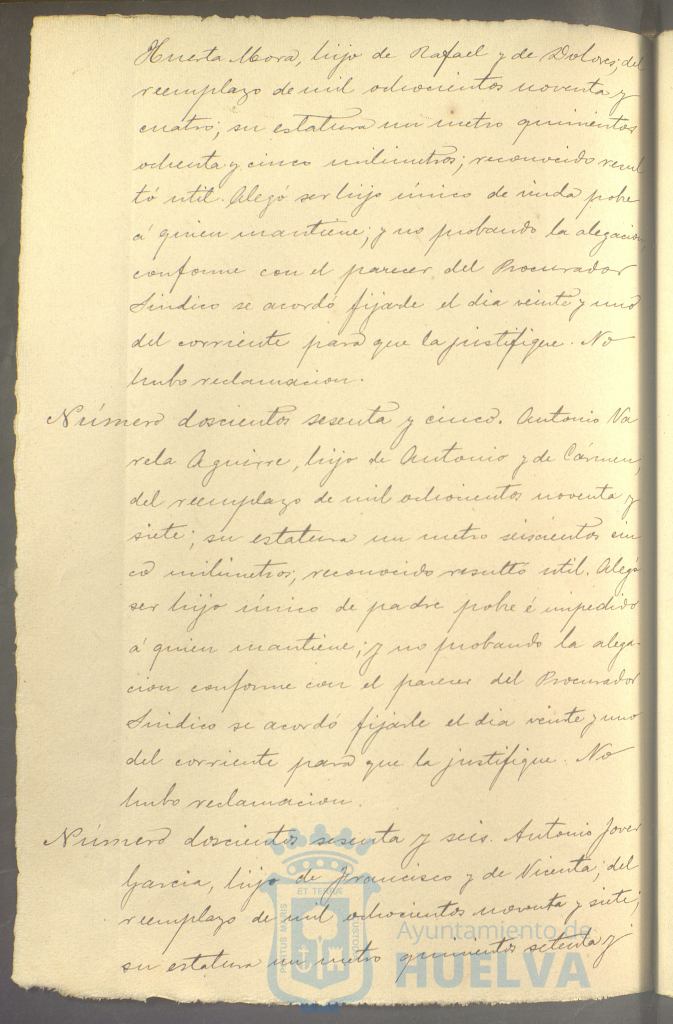 Huerta Mora, hijo de Rafael y de Dolores; del
reemplazo de mil ochocientos noventa y
cuatro; su estatura un metro quinientos
ochenta y cinco milimetros; reconocido resul
tó util. Alegó ser hijo único de viuda pobre
á quien mantiene; y no probando la alegacion
conforme con el parecer del Procurador
Sindico se acordó fijarle el dia veinte y uno
del corriente para que la justifique. No
hubo reclamacion.
Número doscientos sesenta y cinco. Antonio Va
rela Aguirre, hijo de Antonio y de Cármen,
del reemplazo de mil ochocientos noventa y
siete; su estatura un metro seiscientos cin
co milimetros; reconocido resultó util. Alegó
ser hijo único de padre pobre é impedido
á quien mantiene; y no probando la alega-
cion conforme con el parecer del Procurador
Sindico se acordó fijarle el dia veinte y uno
del corriente para que la justifique. No
hubo reclamacion.
Número doscientos sesenta y seis. Antonio Jover
Garcia, hijo de Francisco y de Vicenta; del
reemplazo de mil ochocientos noventa y siete;
su estatura un metro quinientos setenta y
PORTUS MARIS ET TERRE CUSTODIA
Ayuntamiento de
HUELVA